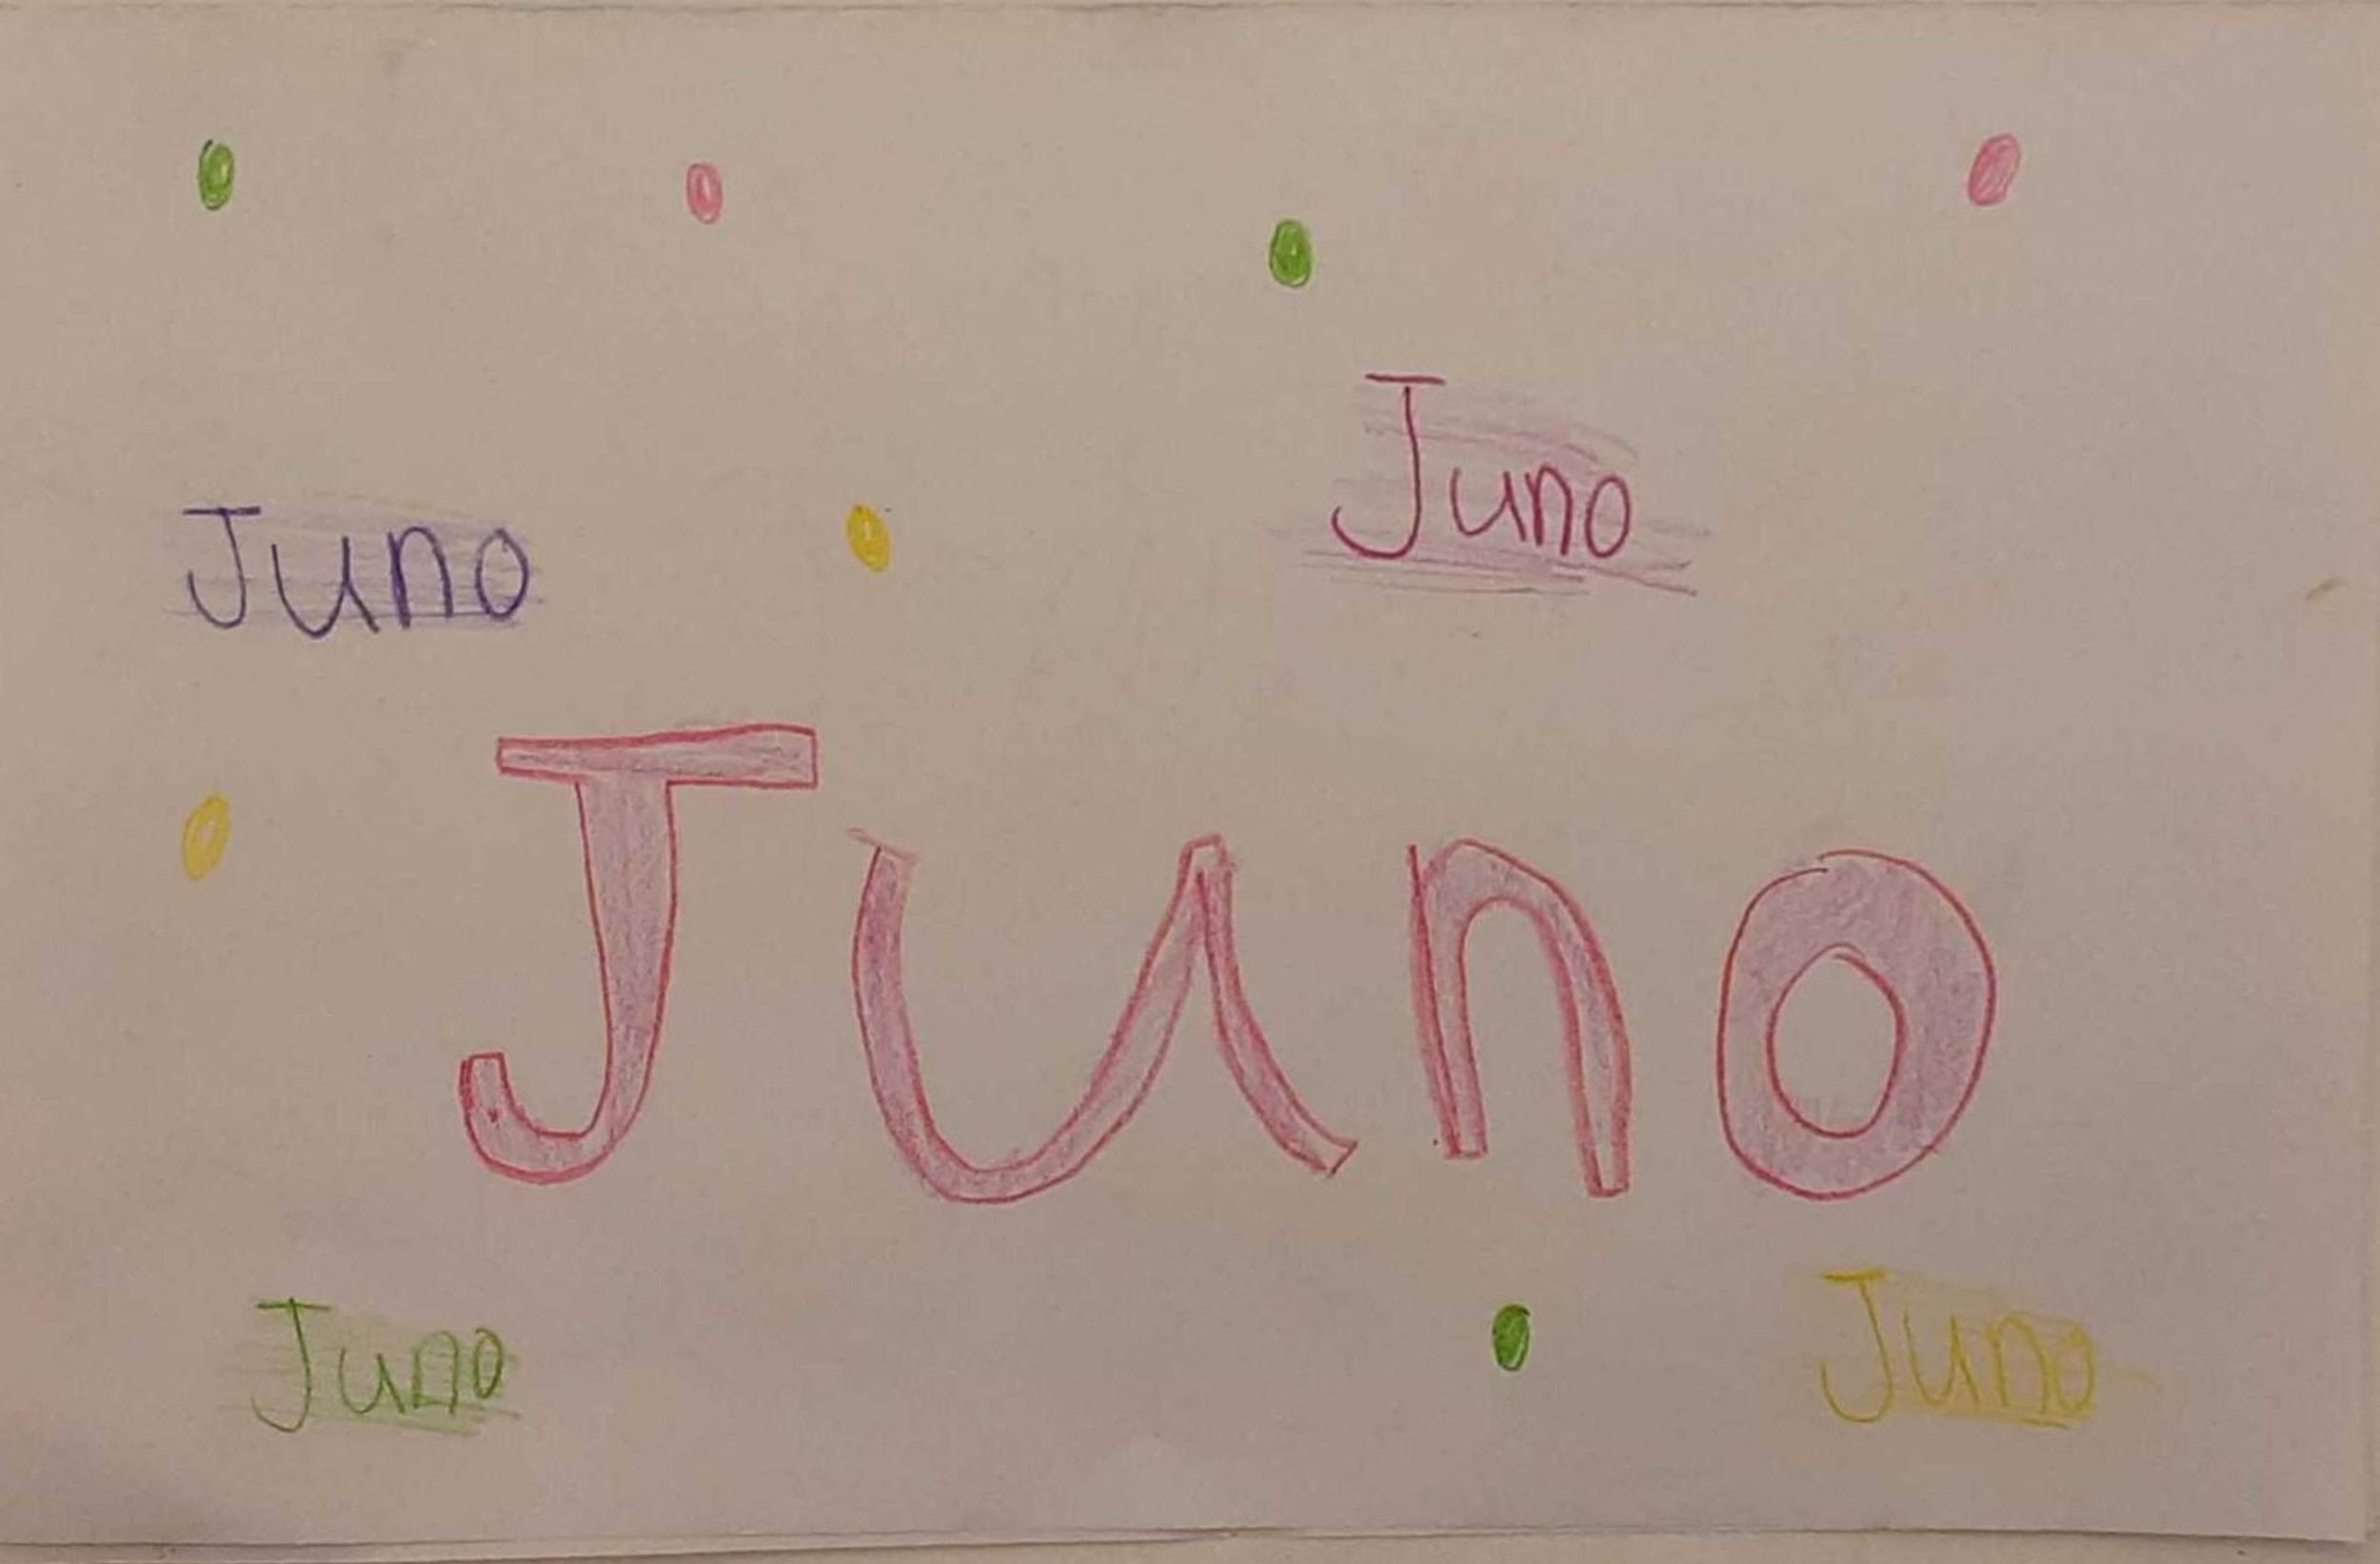 Juno
Juno
Juno
Juno
Juno